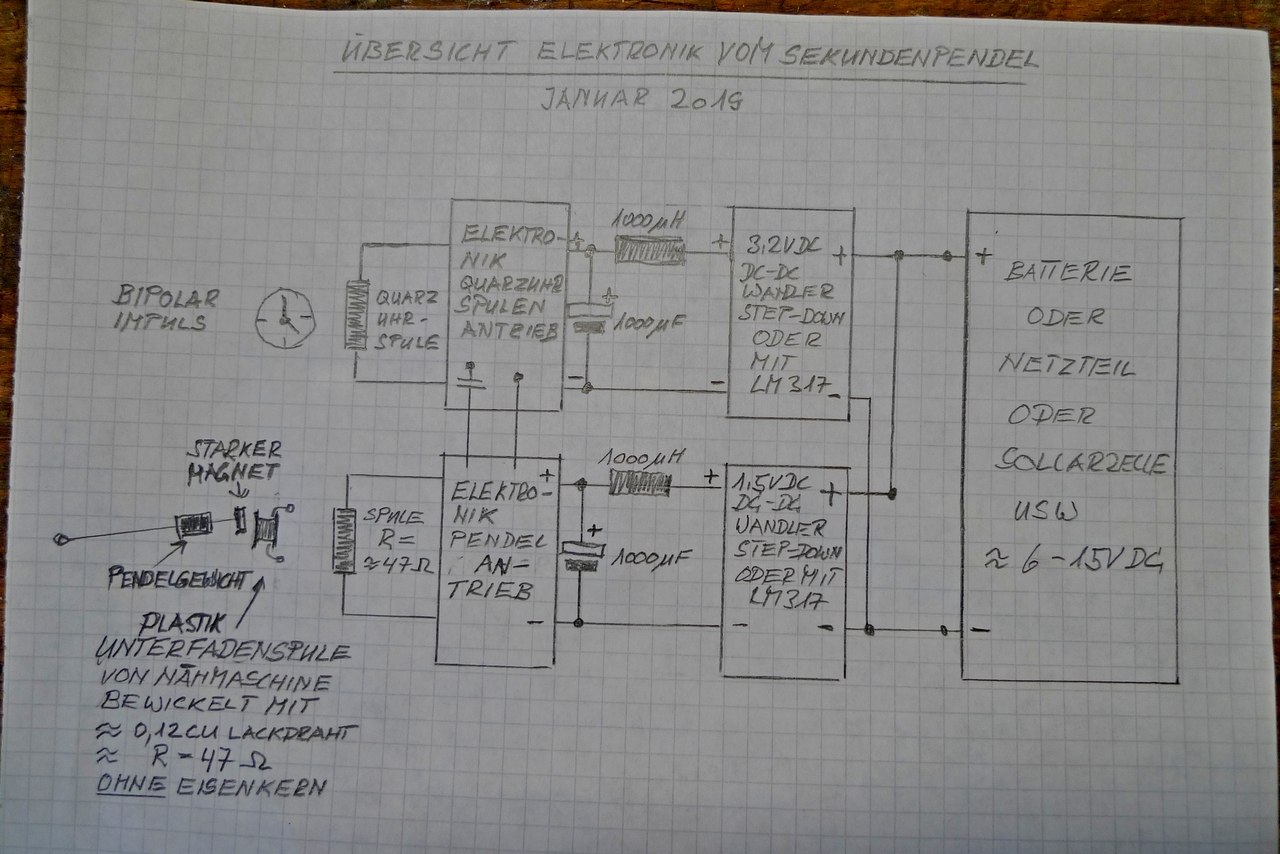 ÜBERSICHT ELEKTRONIK VOM SEKUNDENPENDEL
JANUAR 2019
BIPOLAR
IMPULS
QUARZ
UHR-
SPULE
ELEKTRO-
NIK
QUARZUHR
SPULEN
ANTRIEB
+
-
1000µH
+
1000µF
+
-
3,2VDC
DC-DC
WANDLER
STEP-DOWN
ODER
MIT
LM317
+
-
+
BATTERIE
ODER
NETZTEIL
ODER
SOLLARZELLE
USW
≈ 6-15VDC
-
STARKER
MAGNET
PENDELGEWICHT
PLASTIK
UNTERFADENSPULE
VON NÄHMASCHINE
BEWICKELT MIT
≈ 0,12CU LACKDRAHT
≈ R=47Ω
OHNE EISENKERN
SPULE
R=
≈47Ω
ELEKTRO-
NIK
PENDEL
AN-
TRIEB
+
-
1000µH
+
1000µF
+
-
1,5VDC
DC-DC
WANDLER
STEP-DOWN
ODER MIT
LM317
+
-